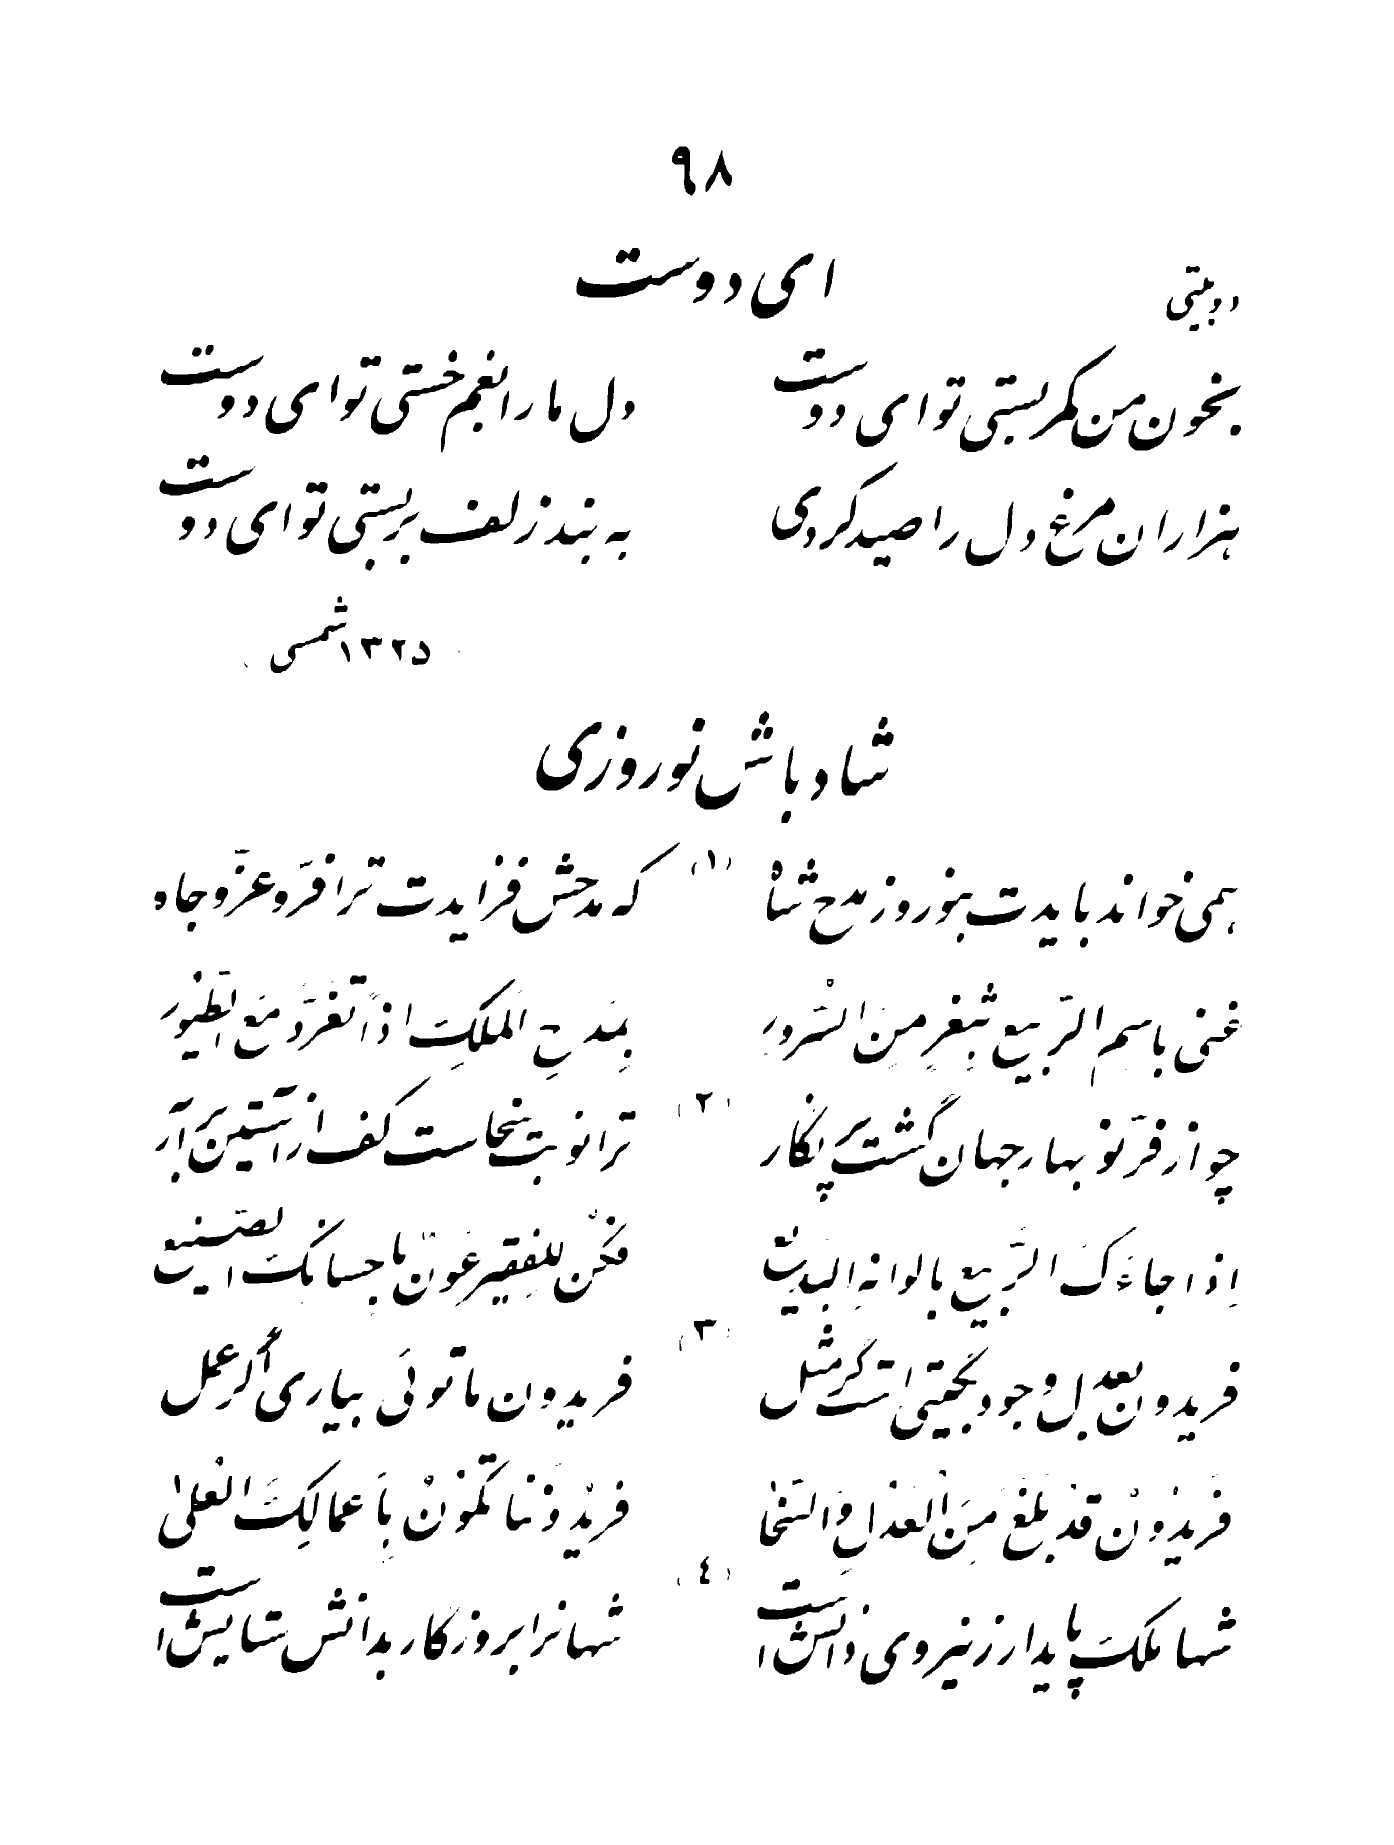 ۹۸
ای دوست
دوبیتی
بخون من کمر بستی تو ای دوست دل ما را بغم خستی تو ای دوست
هزاران مرغ دل را صید کردی به بند زلف بر بستی تو ای دوست
۱۳۲۵ شمسی
شاد باش نوروزی
همی خواند بایدت بنوروز مدح شاه (۱) که مدحش فزایدت ترا فرّ و عزّ و جاه
غنی باسم الرّبیع بثغرٍ مِنَ السُّرورِ بِمَدحِ المَلِکِ اذا تَغَرَّدَ مَعَ الطّیُور
چو از فرّ نو بهار جهان گشت پر نگار (۲) ترا نوبت سخاست کف از آستین بر آر
اِذا جاءَکَ الرَّبیع بالوانهِ البَدیع فکُن للفقیرِ عَوناً باِحسانکَ الصَّنیع
فریدون بعدل وجود بگیتی است گر مثل (۳) فریدون ما توئی بیاری اگر عمل
فَریدُونُ قَد بَلَغَ مِنَ العَدلِ وَ السَّخا فریدُونُنا تَکُونُ بِأَعمالِکَ العُلیٰ
شها ملک پایدار ز نیروی دانش است (٤) شهانرا بروزگار بدانش ستایش است